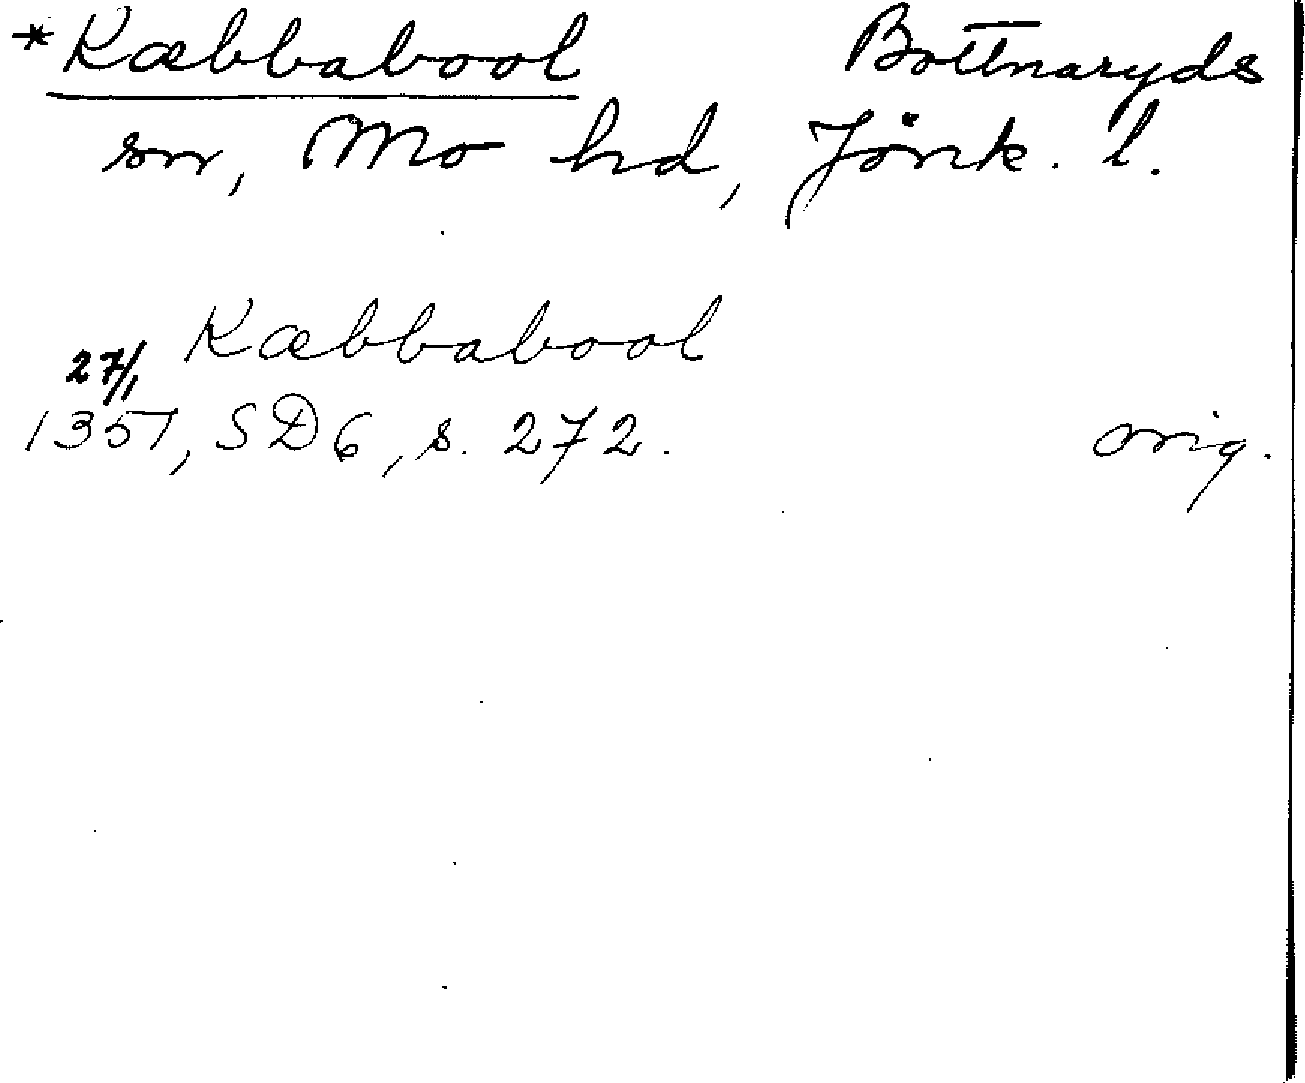 *Kæbbabool Bottnaryds
sn, Mo hd, Jönk. l.
Kæbbabool
27/1
1351, SD6, s. 272. orig.